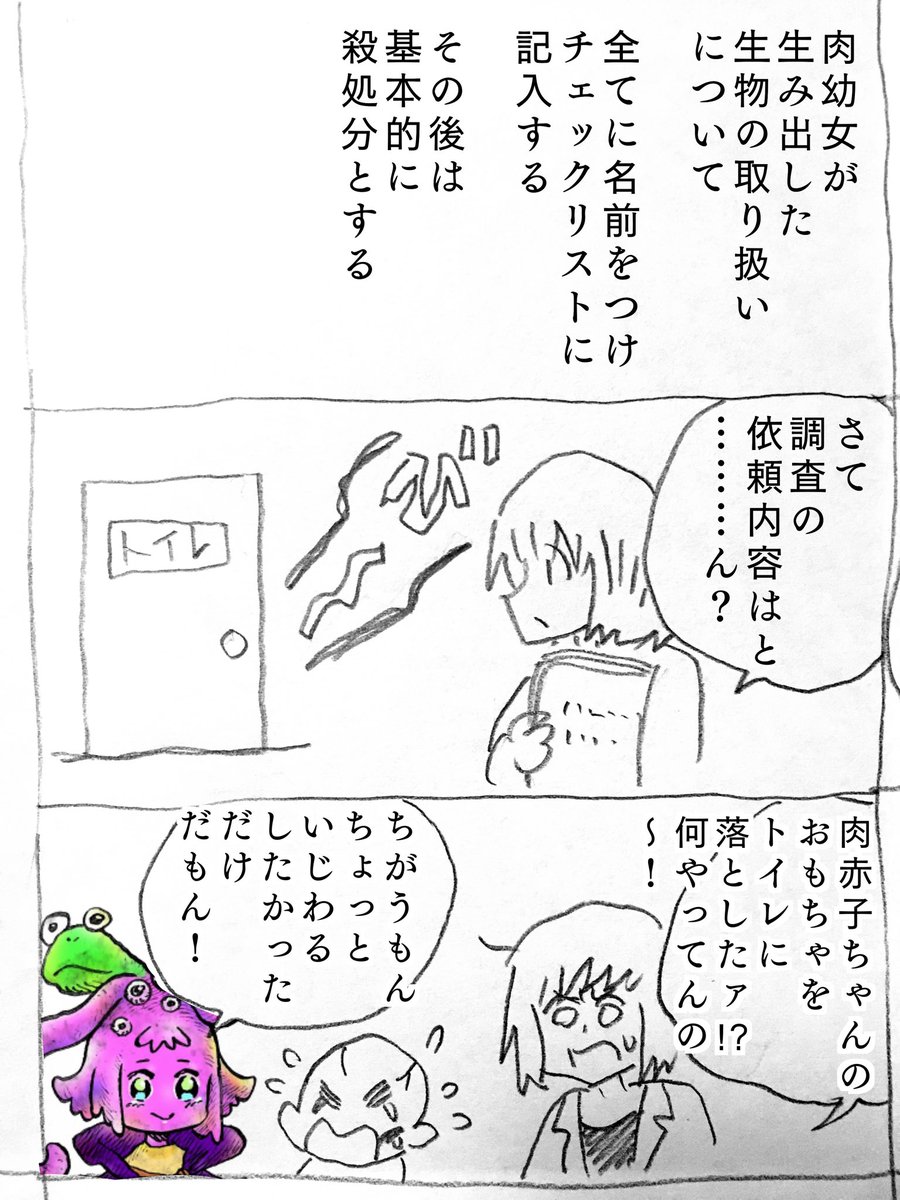 肉幼女が
生み出した
生物の取り扱い
について
全てに名前をつけ
チェックリストに
記入する
その後は
基本的に
殺処分とする
さて
調査の
依頼内容はと
…………ん？
トイレ
肉赤子ちゃんの
おもちゃを
トイレに
落としたァ!?
何やってんの
～！
ちがうもん
ちょっと
いじわる
したかった
だけ
だもん！